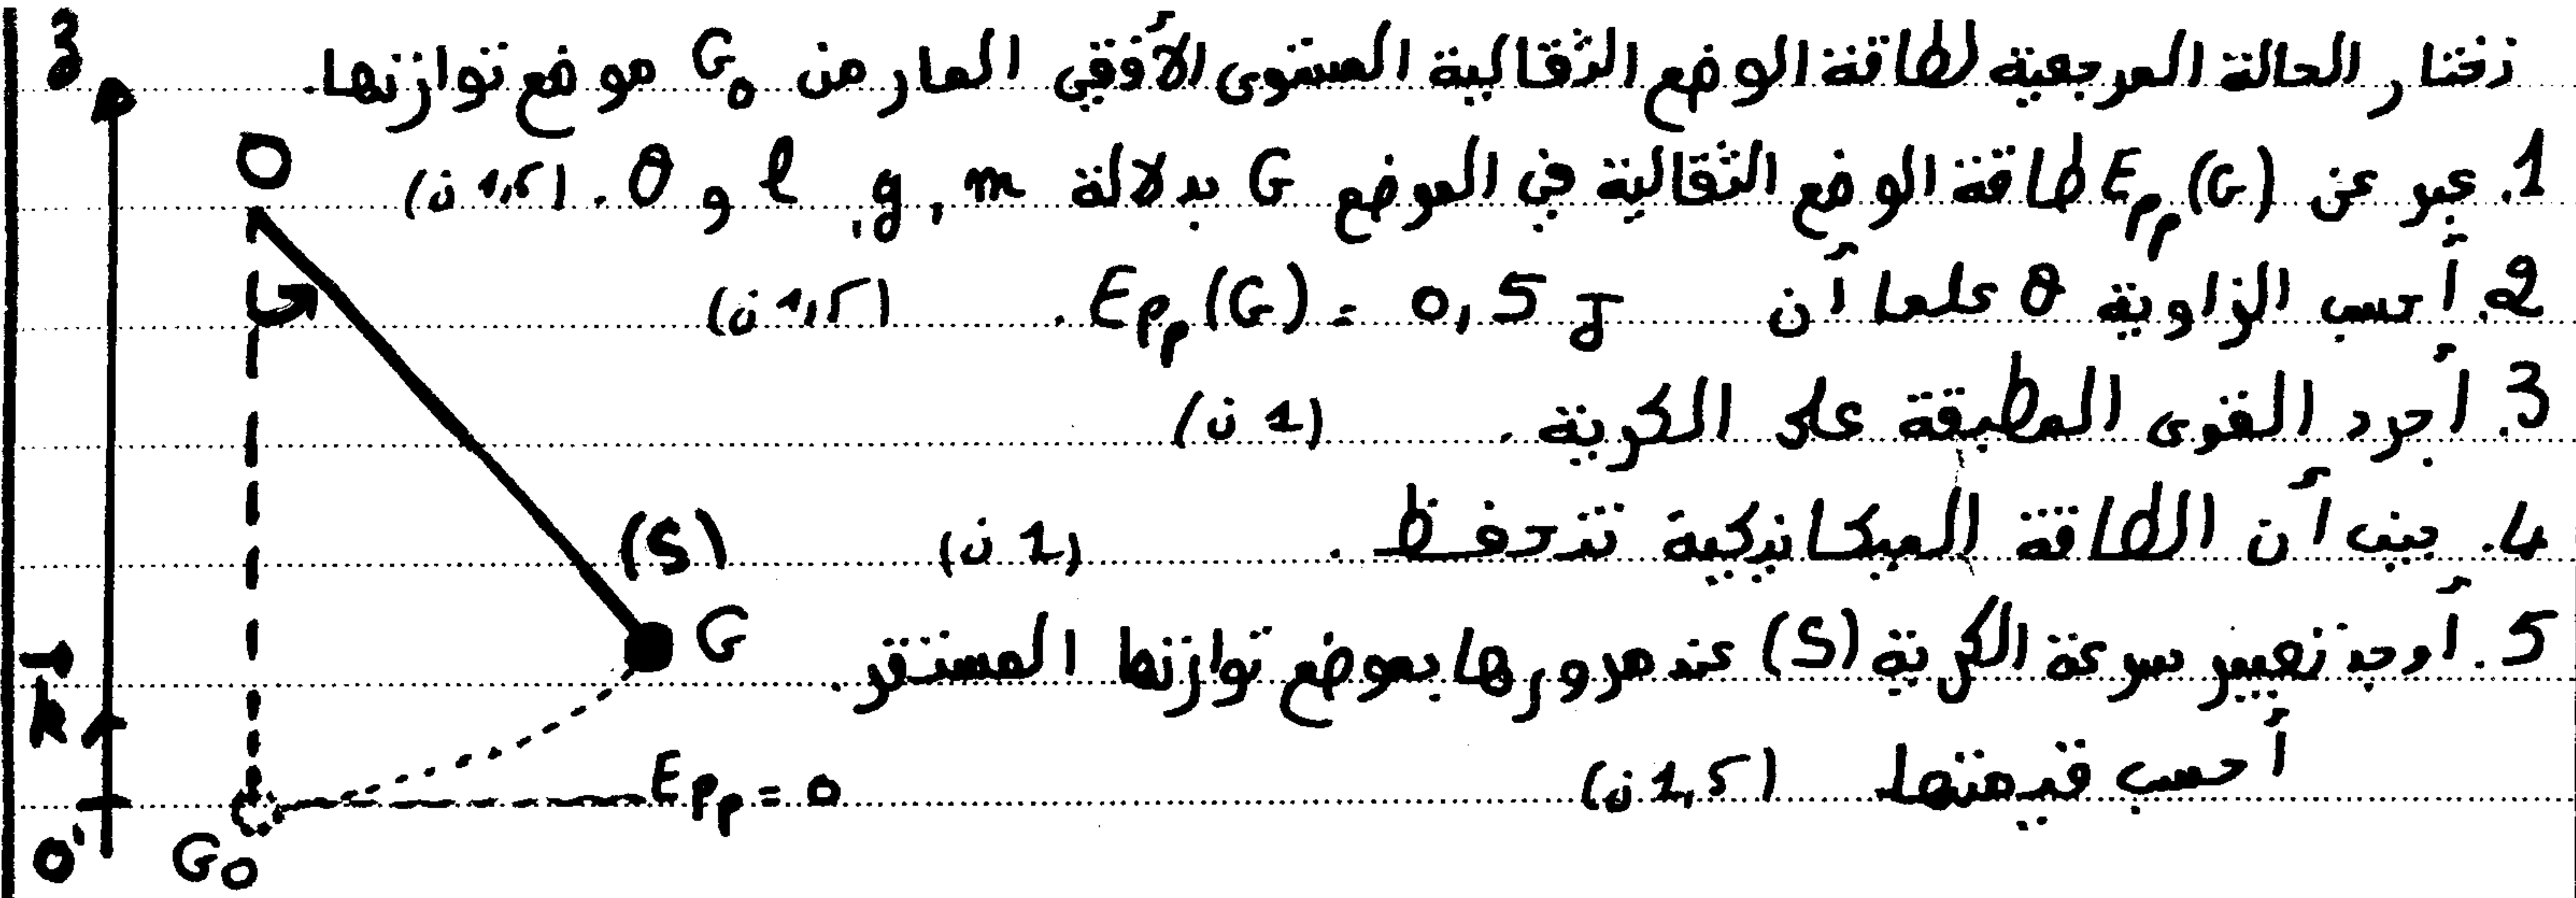 نختار الحالة المرجعية لطاقة الوضع الثقالية المستوى الأفقي المار من G₀ موضع توازنها.
1. عبر عن Epp(G) طاقة الوضع الثقالية في الموضع G بدلالة m , g, l و θ. (1,5 ن)
2. أحسب الزاوية θ علما أن Epp(G) = 0,5 J . (1,5 ن)
3. أجرد القوى المطبقة على الكرية . (1 ن)
4. بين أن الطاقة الميكانيكية تنحفظ . (1 ن)
5. أوجد تعبير سرعة الكرية (S) عند مرورها بموضع توازنها المستقر .
أحسب قيمتها (1,5 ن)
z
O
(S)
G
k
Epp = 0
O'
G₀